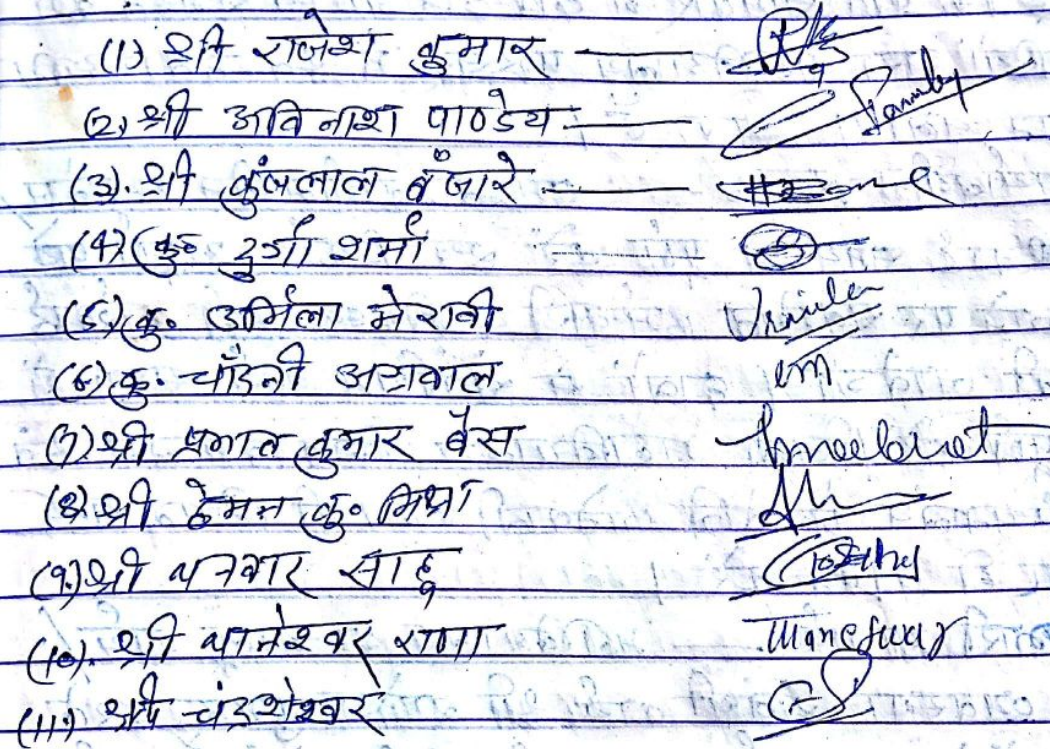 (1) श्री राजेश कुमार
(2) श्री अविनाश पाण्डेय
(3). श्री कुंजलाल बंजारे
(4) कु० दुर्गा शर्मा
(5) कु. उर्मिला मेरावी Urmila
(6) कु. चाँदनी अग्रवाल
(7) श्री प्रभात कुमार बैस
(8) श्री हेमन्त कु० मिश्रा
(9) श्री साहू
(10). श्री थानेश्वर राणा Thaneswar
(11) श्री चंद्रशेखर